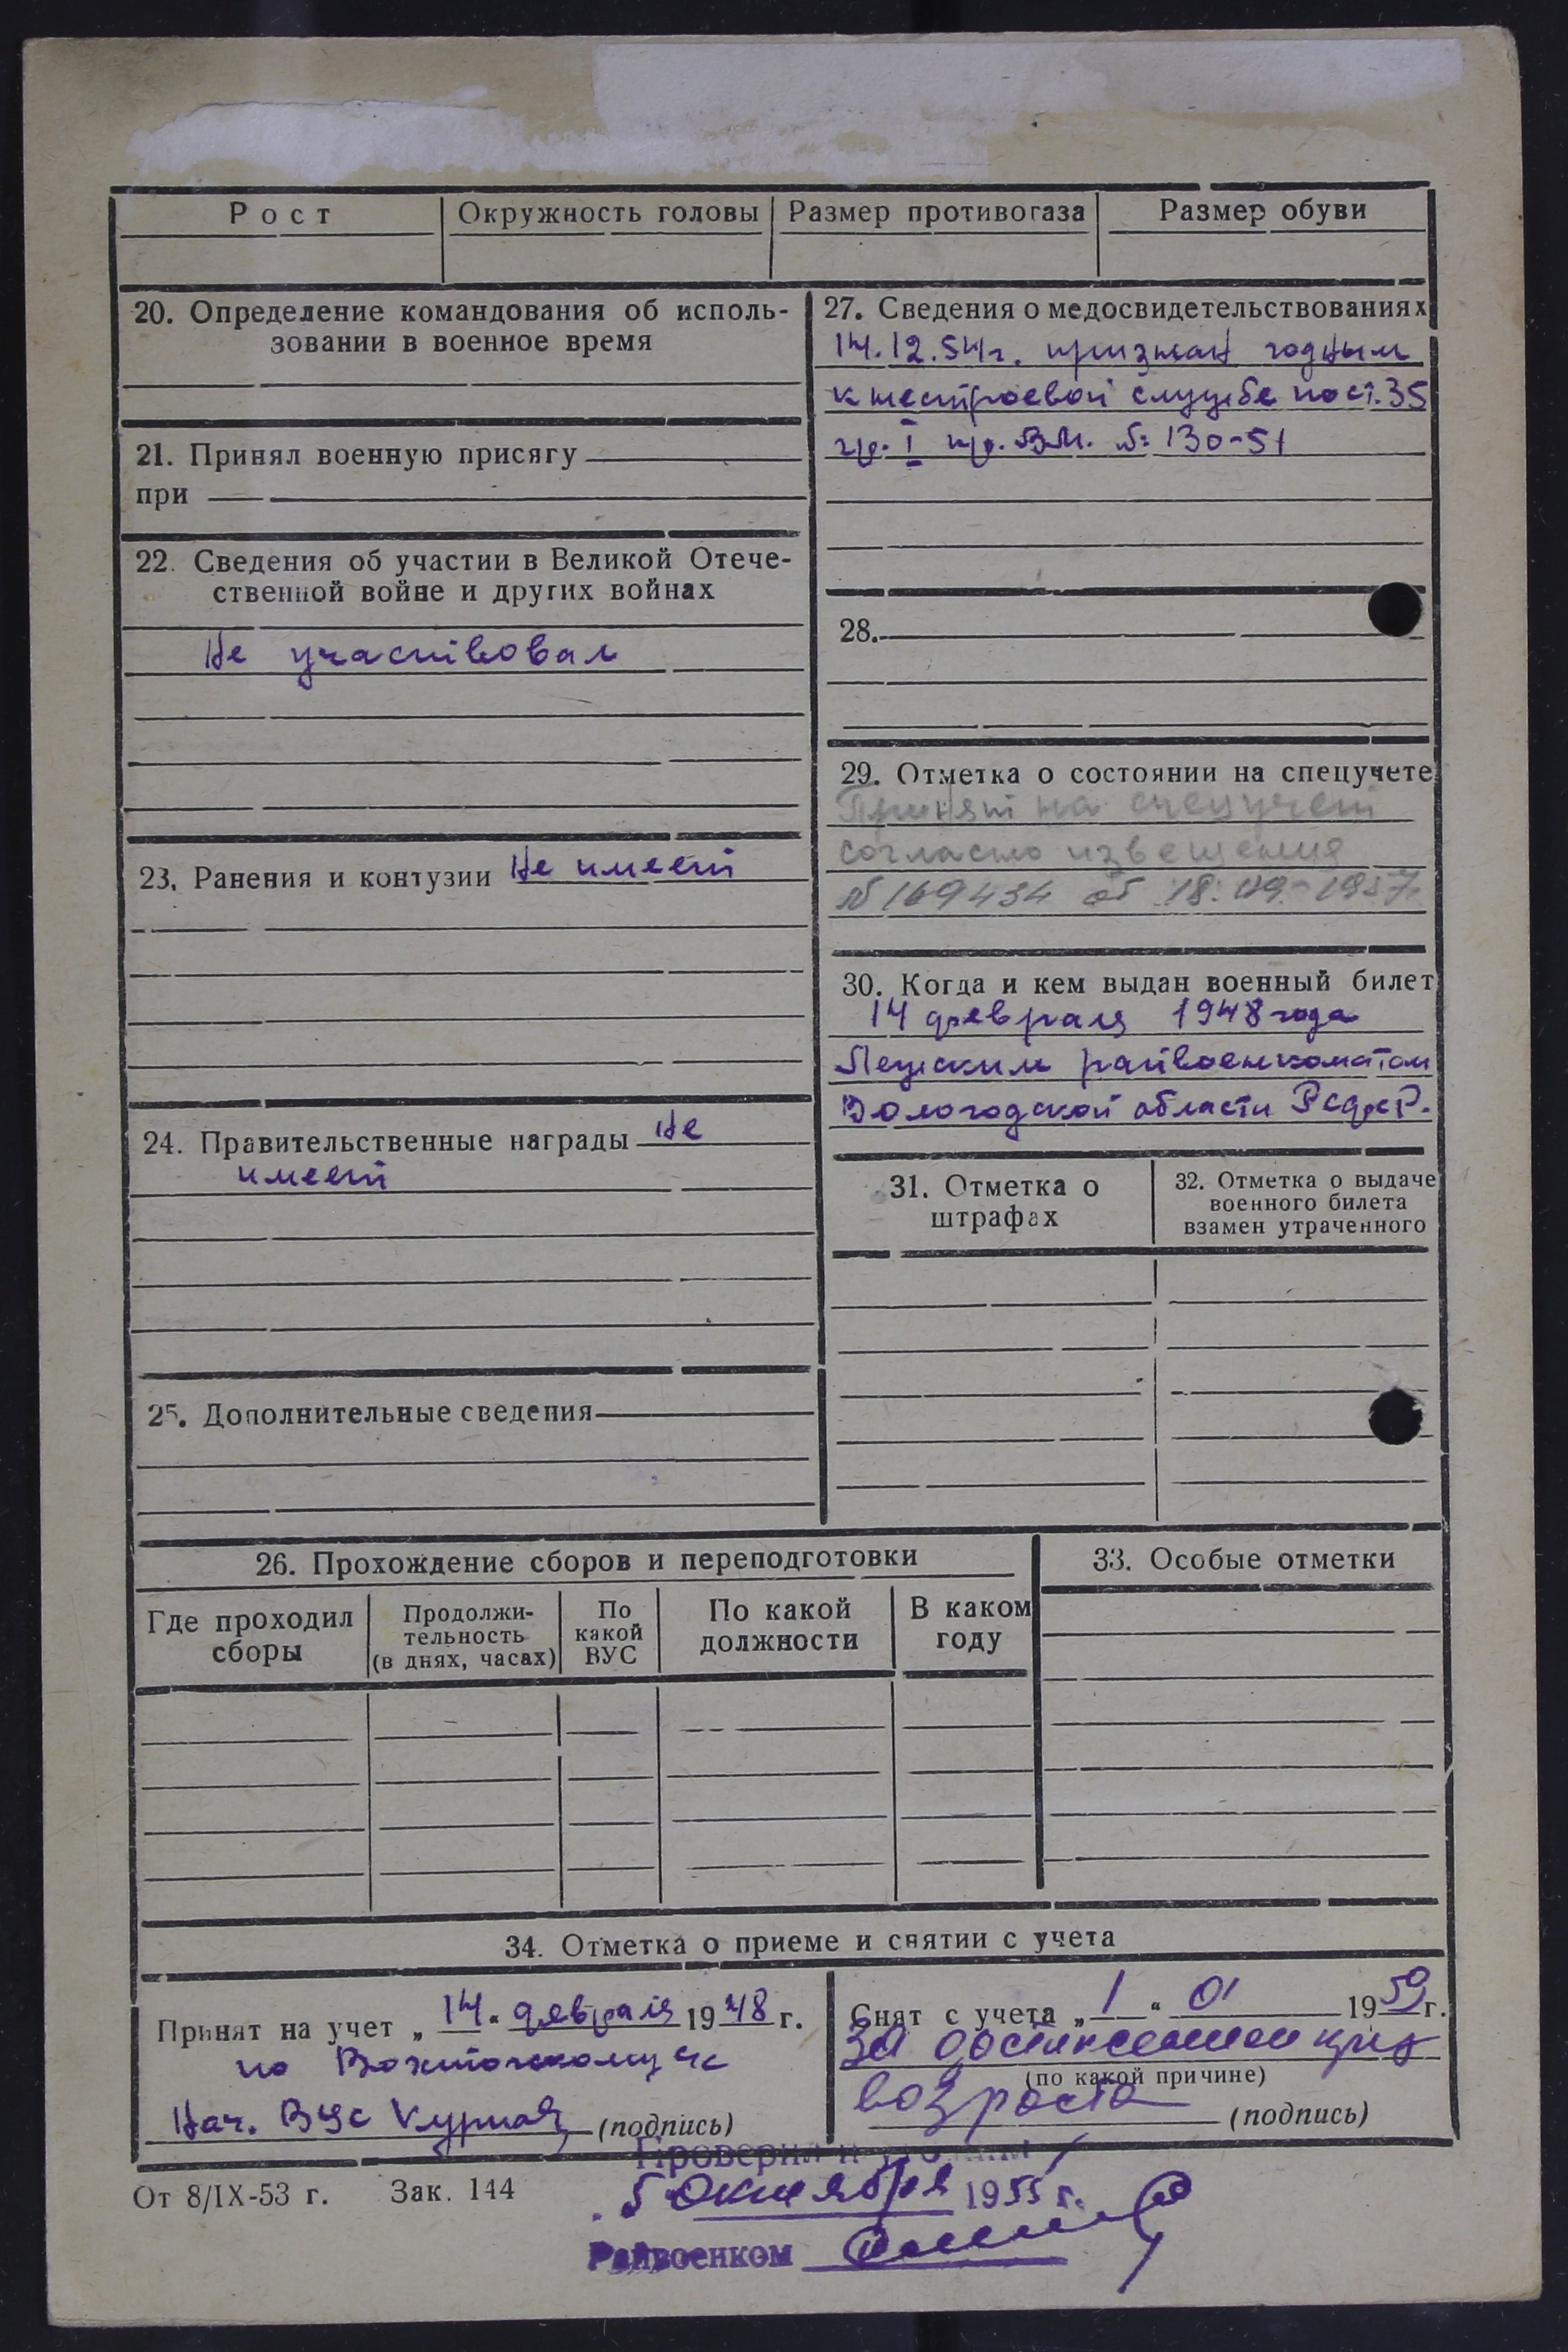 Рост Окружность головы Размер противогаза Размер обуви
20. Определение командования об исполь-
зовании в военное время
21. Принял военную присягу
при
22. Сведения об участии в Великой Отече-
ственной войне и других войнах
Не участвовал
23. Ранения и контузии Не имеет
24. Правительственные награды Не
имеет
25. Дополнительные сведения
27. Сведения о медосвидетельствованиях
14.12.54г. признан годным
к нестроевой службе по ст. 35
гр. I пр. ВМ. № 130-51
28.
29. Отметка о состоянии на спецучете
Принят на спецучет
согласно извещения
№ 169434 от 18. 09. 1957
30. Когда и кем выдан военный билет
14 февраля 1948 года
Лежским райвоенкоматом
Вологодской области РСФСР.
31. Отметка о
штрафах
32. Отметка о выдаче
военного билета
взамен утраченного
26. Прохождение сборов и переподготовки
Где проходил
сборы
Продолжи-
тельность
(в днях, часах)
По
какой
ВУС
По какой
должности
В каком
году
33. Особые отметки
34. Отметка о приеме и снятии с учета
Принят на учет „14“ февраля 1948 г.
по
Нач. ВУС (подпись)
Снят с учета „1“ 01 1959 г.
за достижением
(по какой причине)
возраста (подпись)
От 8/IX-53 г. Зак. 144
Проверил
5 октября 1955 г.
Райвоенком